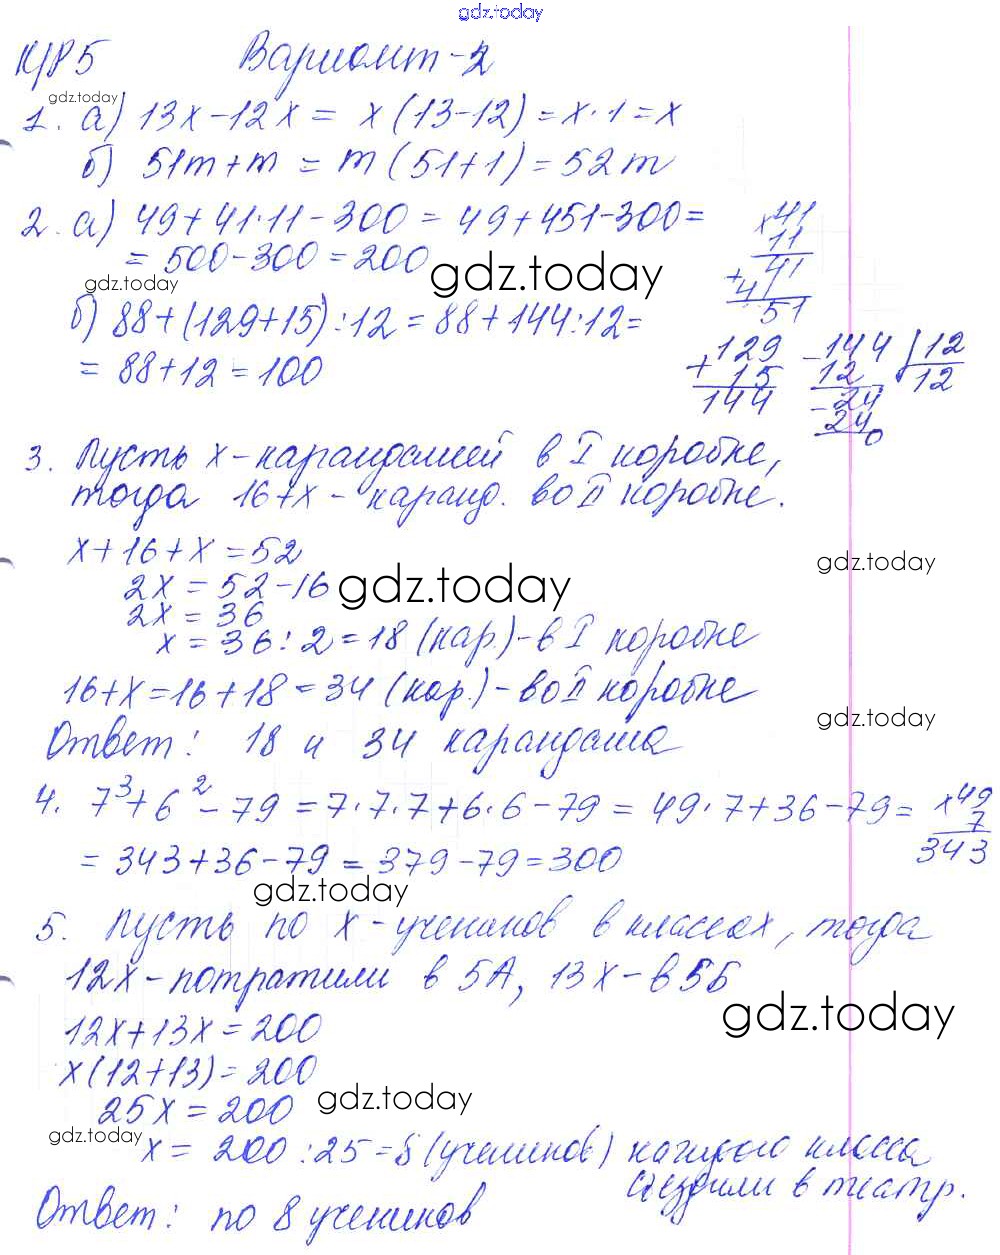 gdz.today
К/Р 5 Вариант-2
gdz.today
1. а) 13x-12x = x(13-12) = x·1 = x
б) 51m+m = m(51+1) = 52m
2. а) 49+41·11-300 = 49+451-300=
= 500-300 = 200
x41
11
+41
41
51
gdz.today
gdz.today
б) 88+(129+15):12 = 88+144:12=
= 88+12 = 100
+129
15
144
-144 | 12
12 12
-24
24
0
3. Пусть x-карандашей в I коробке,
тогда 16+x - каранд. во II коробке.
x+16+x = 52
gdz.today
2x = 52-16
gdz.today
2x = 36
x = 36:2 = 18 (кар.)-в I коробке
16+x = 16+18 = 34 (кар.)-во II коробке
gdz.today
Ответ: 18 и 34 карандаша
4. 7³+6²-79 = 7·7·7+6·6-79 = 49·7+36-79=
= 343+36-79 = 379-79 = 300
x49
7
343
gdz.today
5. Пусть по x-учеников в классах, тогда
12x-потратили в 5А, 13x-в 5Б
gdz.today
12x+13x = 200
x(12+13) = 200
25x = 200
gdz.today
gdz.today
x = 200:25 = 8 (учеников) каждого класса
ездили в театр.
Ответ: по 8 учеников